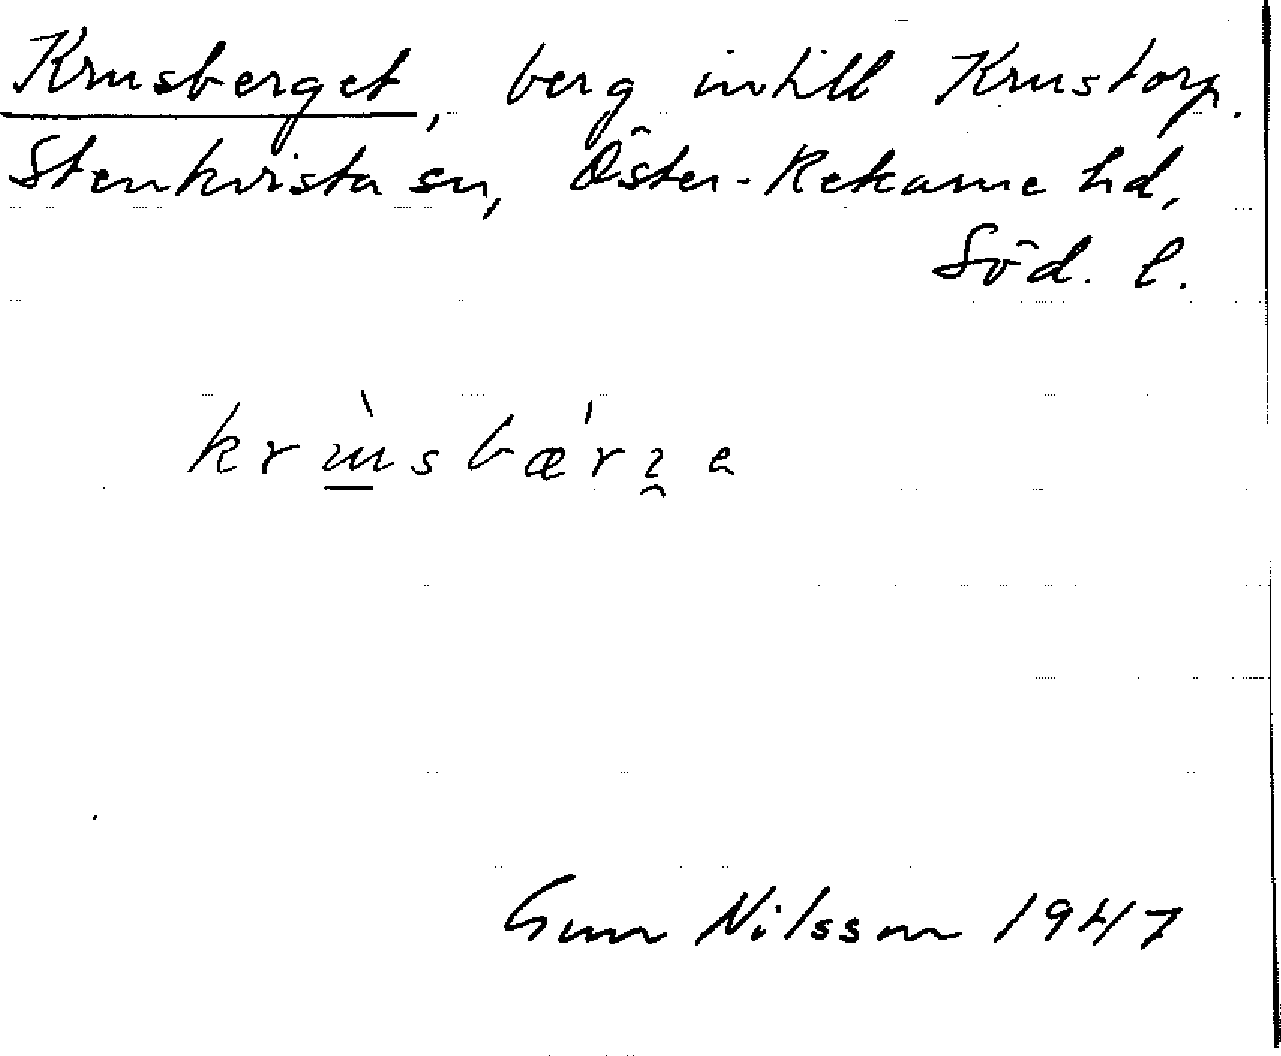 Krusberget, berg intill Krustorp.
Stenkvista sn, Öster-Rekarne hd,
Söd. l.
Gun Nilsson 1947